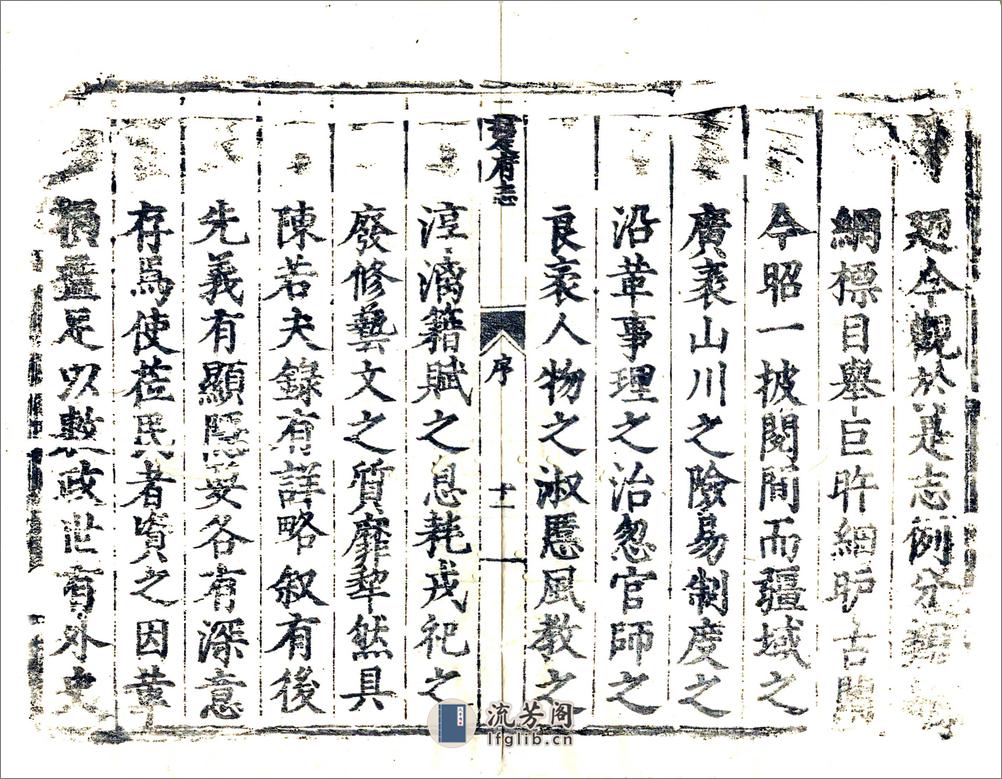 今觀於是志例分
綱標目舉巨細古
今昭一披閱間而疆域之
廣袤山川之險易制度之
沿革事理之治忽官師之
良袤人物之淑慝風教之
府志
序
十一
淳漓籍賦之息耗戎祀之
廢修藝文之質靡犂然具
陳若夫錄有詳略叙有後
先義有顯隱要各有深意
存焉使莅民者資之因革
損益足以敷政世有外史
流芳阁
lfglib.cn